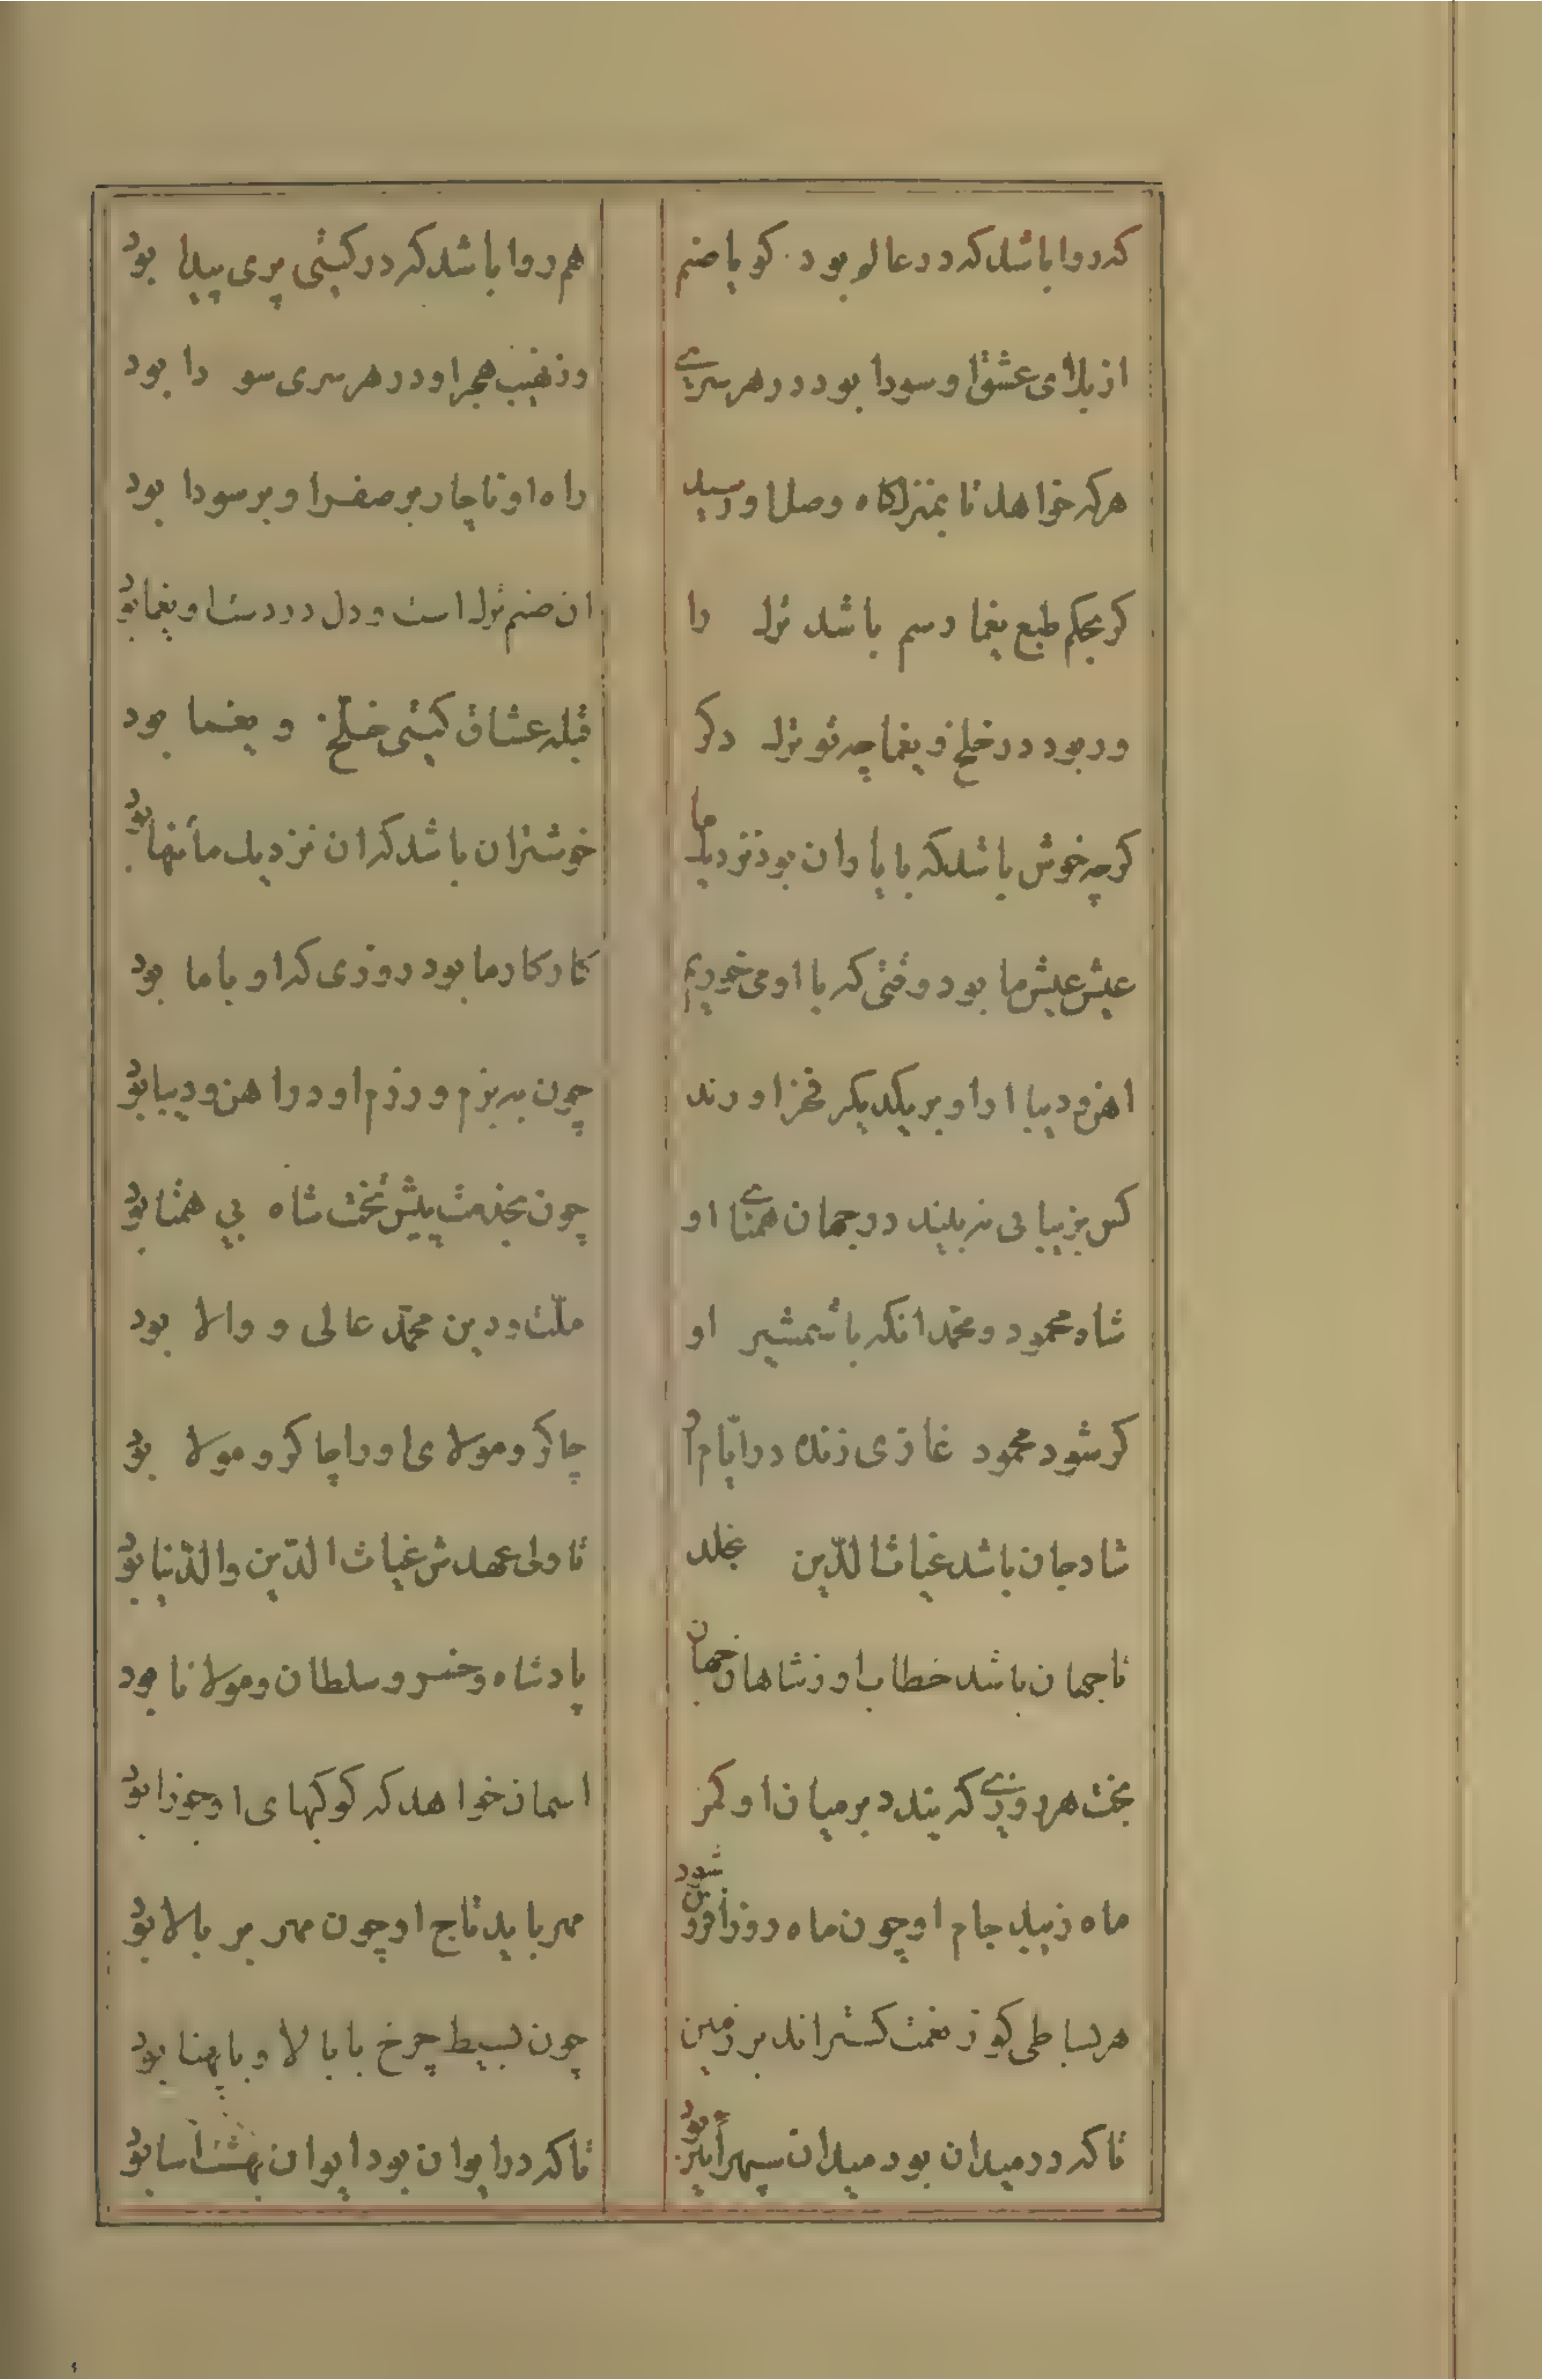 که روا باشد که در عالم بود کویا صنم هم روا باشد که در کیتی پری پیدا بود
از بلای عشق او سودا بود در هر سری وز نهیب هجر او در هر سری سودا بود
هر که خواهد تا بمنزلکاه وصل او رسید راه او ناچار بر صفرا و بر سودا بود
کر بحکم طبع یغما رسم باشد ترک را ان صنم ترک است و دل در دست او یغما بود
ور بود در خلخ و یغما چه تو ترک دکر قبله عشاق کیتی خلّخ و یغما بود
کرچه خوش باشد که با یاران بود نزدیک ما خوشتر ان باشد که ان نزدیک ما تنها بود
عیش عیش ما بود وقتی که با او می خوریم کار کار ما بود روزی که او با ما بود
اهن و دیبا ارا و بر یکدیکر فخر اورند چون به بزم و رزم او در اهن و دیبا بود
کس بزیبایی نه بیند در جهان همتای او چون بخدمت پیش تخت شاه بی همتا بود
شاه محمود و محمّد انکه با شمشیر او ملّت و دین محمّد عالی و والا بود
کر شود محمود غازی زنده در ایّام او چاکر و مولای او را چاکر و مولا بود
شاد جان باشد غیاث الدّین بخلد تا ولی عهدش غیاث الدّین والدّنیا بود
تا جهان باشد خطاب او ز شاهان جهان پادشاه و خسرو سلطان و مولانا بود
بخت هر روزی که بندد بر میان او کمر اسمان خواهد که کوکبهای او جوزا بود
ماه زیبد جام او چون ماه روزافزون شود مهر باید تاج او چون مهر بر بالا بود
هر بساطی کو ز نعمت کستراند بر زمین چون بسیط چرخ با بالا و با پهنا بود
تا که در میدان بود میدان سپهر ائین بود تا که در ایوان بود ایوان بهشت اسا بود